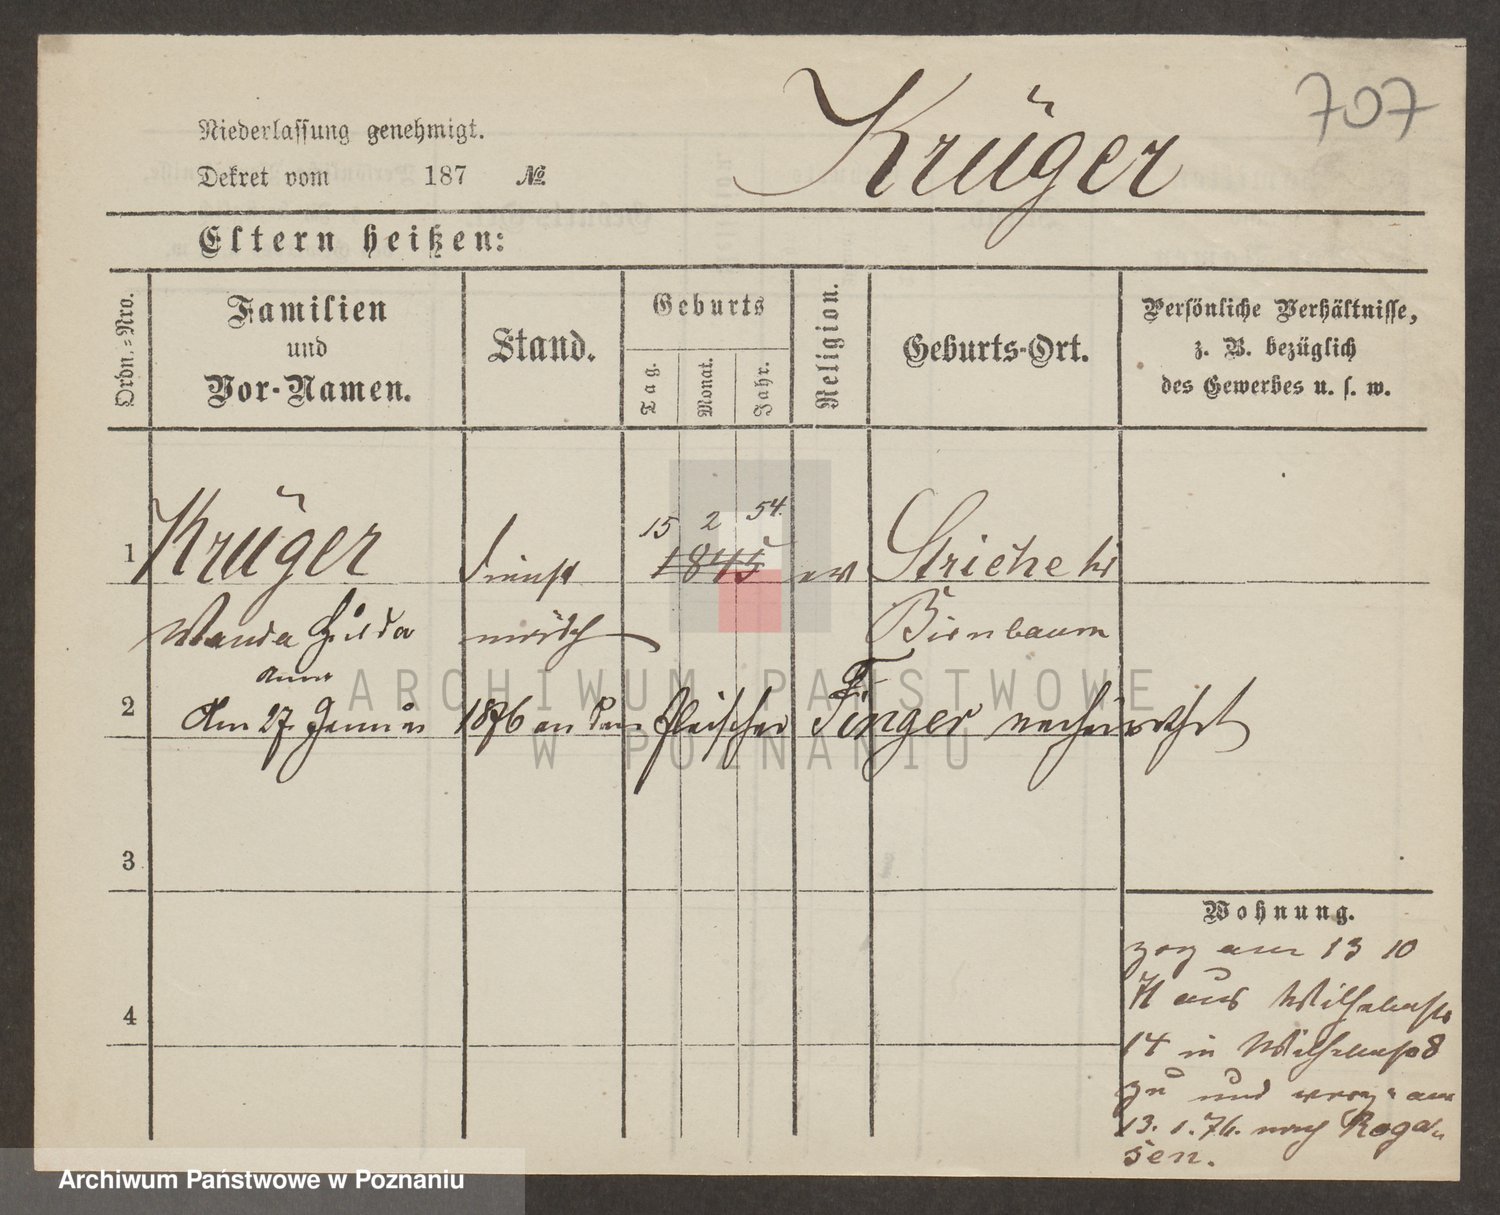 707
Krüger
Niederlassung genehmigt.
Dekret vom 187 №
Eltern heißen:
Ordn.=Nro.
Familien
und
Vor-Namen.
Stand.
Geburts
Tag.
Monat.
Jahr.
Religion.
Geburts-Ort.
Persönliche Verhältnisse,
z. B. bezüglich
des Gewerbes u. s. w.
15 2 54.
1 Krüger Dienst 1845 ev Striche bei
Wanda Hulda mädch Birnbaum
Anna
2 Am 27. Januar 1876 an den Fleischer Finger verheirathet
3
4
Wohnung.
zog am 13 10
74 aus Wilhelmstr
14 in Wilhelmstr 8
zu und verz. am
13. 1. 76. nach Roga-
sen.
ARCHIWUM PAŃSTWOWE
W POZNANIU
Archiwum Państwowe w Poznaniu